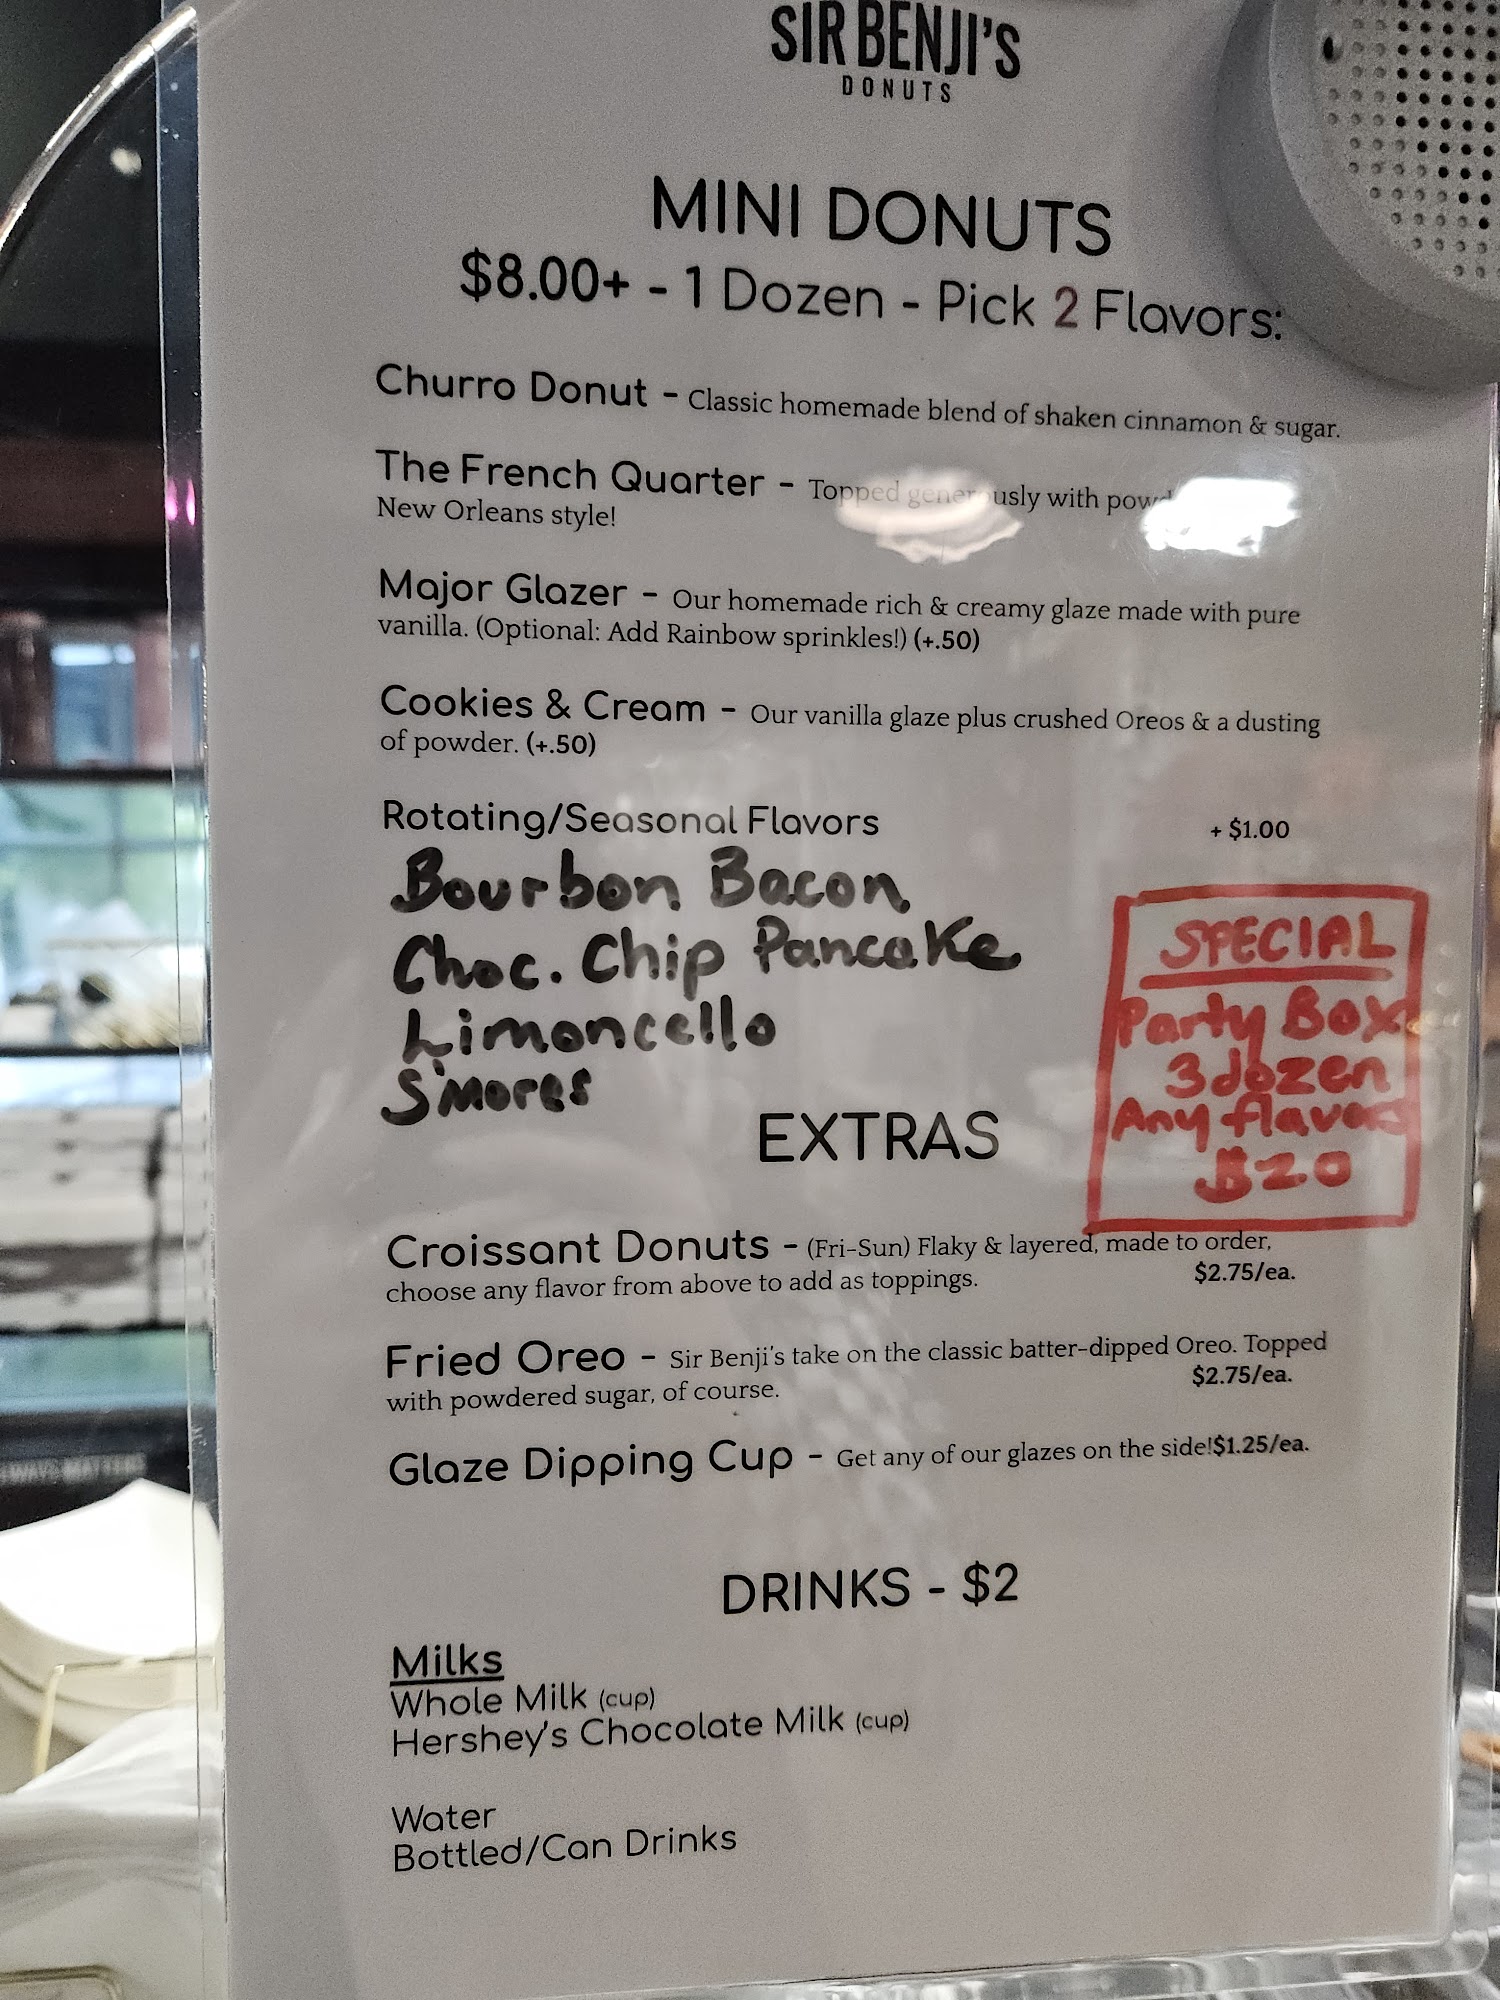 SIR BENJI'S
DONUTS
MINI DONUTS
$8.00+ - 1 Dozen - Pick 2 Flavors:
Churro Donut - Classic homemade blend of shaken cinnamon & sugar.
The French Quarter - Topped generously with
New Orleans style!
Major Glazer - Our homemade rich & creamy glaze made with pure
vanilla. (Optional: Add Rainbow sprinkles!) (+.50)
Cookies & Cream - Our vanilla glaze plus crushed Oreos & a dusting
of powder. (+.50)
Rotating/Seasonal Flavors + $1.00
Bourbon Bacon
Choc. Chip Pancake
Limoncello
S'mores
SPECIAL
Party Box
3 dozen
Any flavors
$20
EXTRAS
Croissant Donuts - (Fri-Sun) Flaky & layered, made to order,
choose any flavor from above to add as toppings. $2.75/ea.
Fried Oreo - Sir Benji's take on the classic batter-dipped Oreo. Topped
with powdered sugar, of course. $2.75/ea.
Glaze Dipping Cup - Get any of our glazes on the side!$1.25/ea.
DRINKS - $2
Milks
Whole Milk (cup)
Hershey's Chocolate Milk (cup)
Water
Bottled/Can Drinks